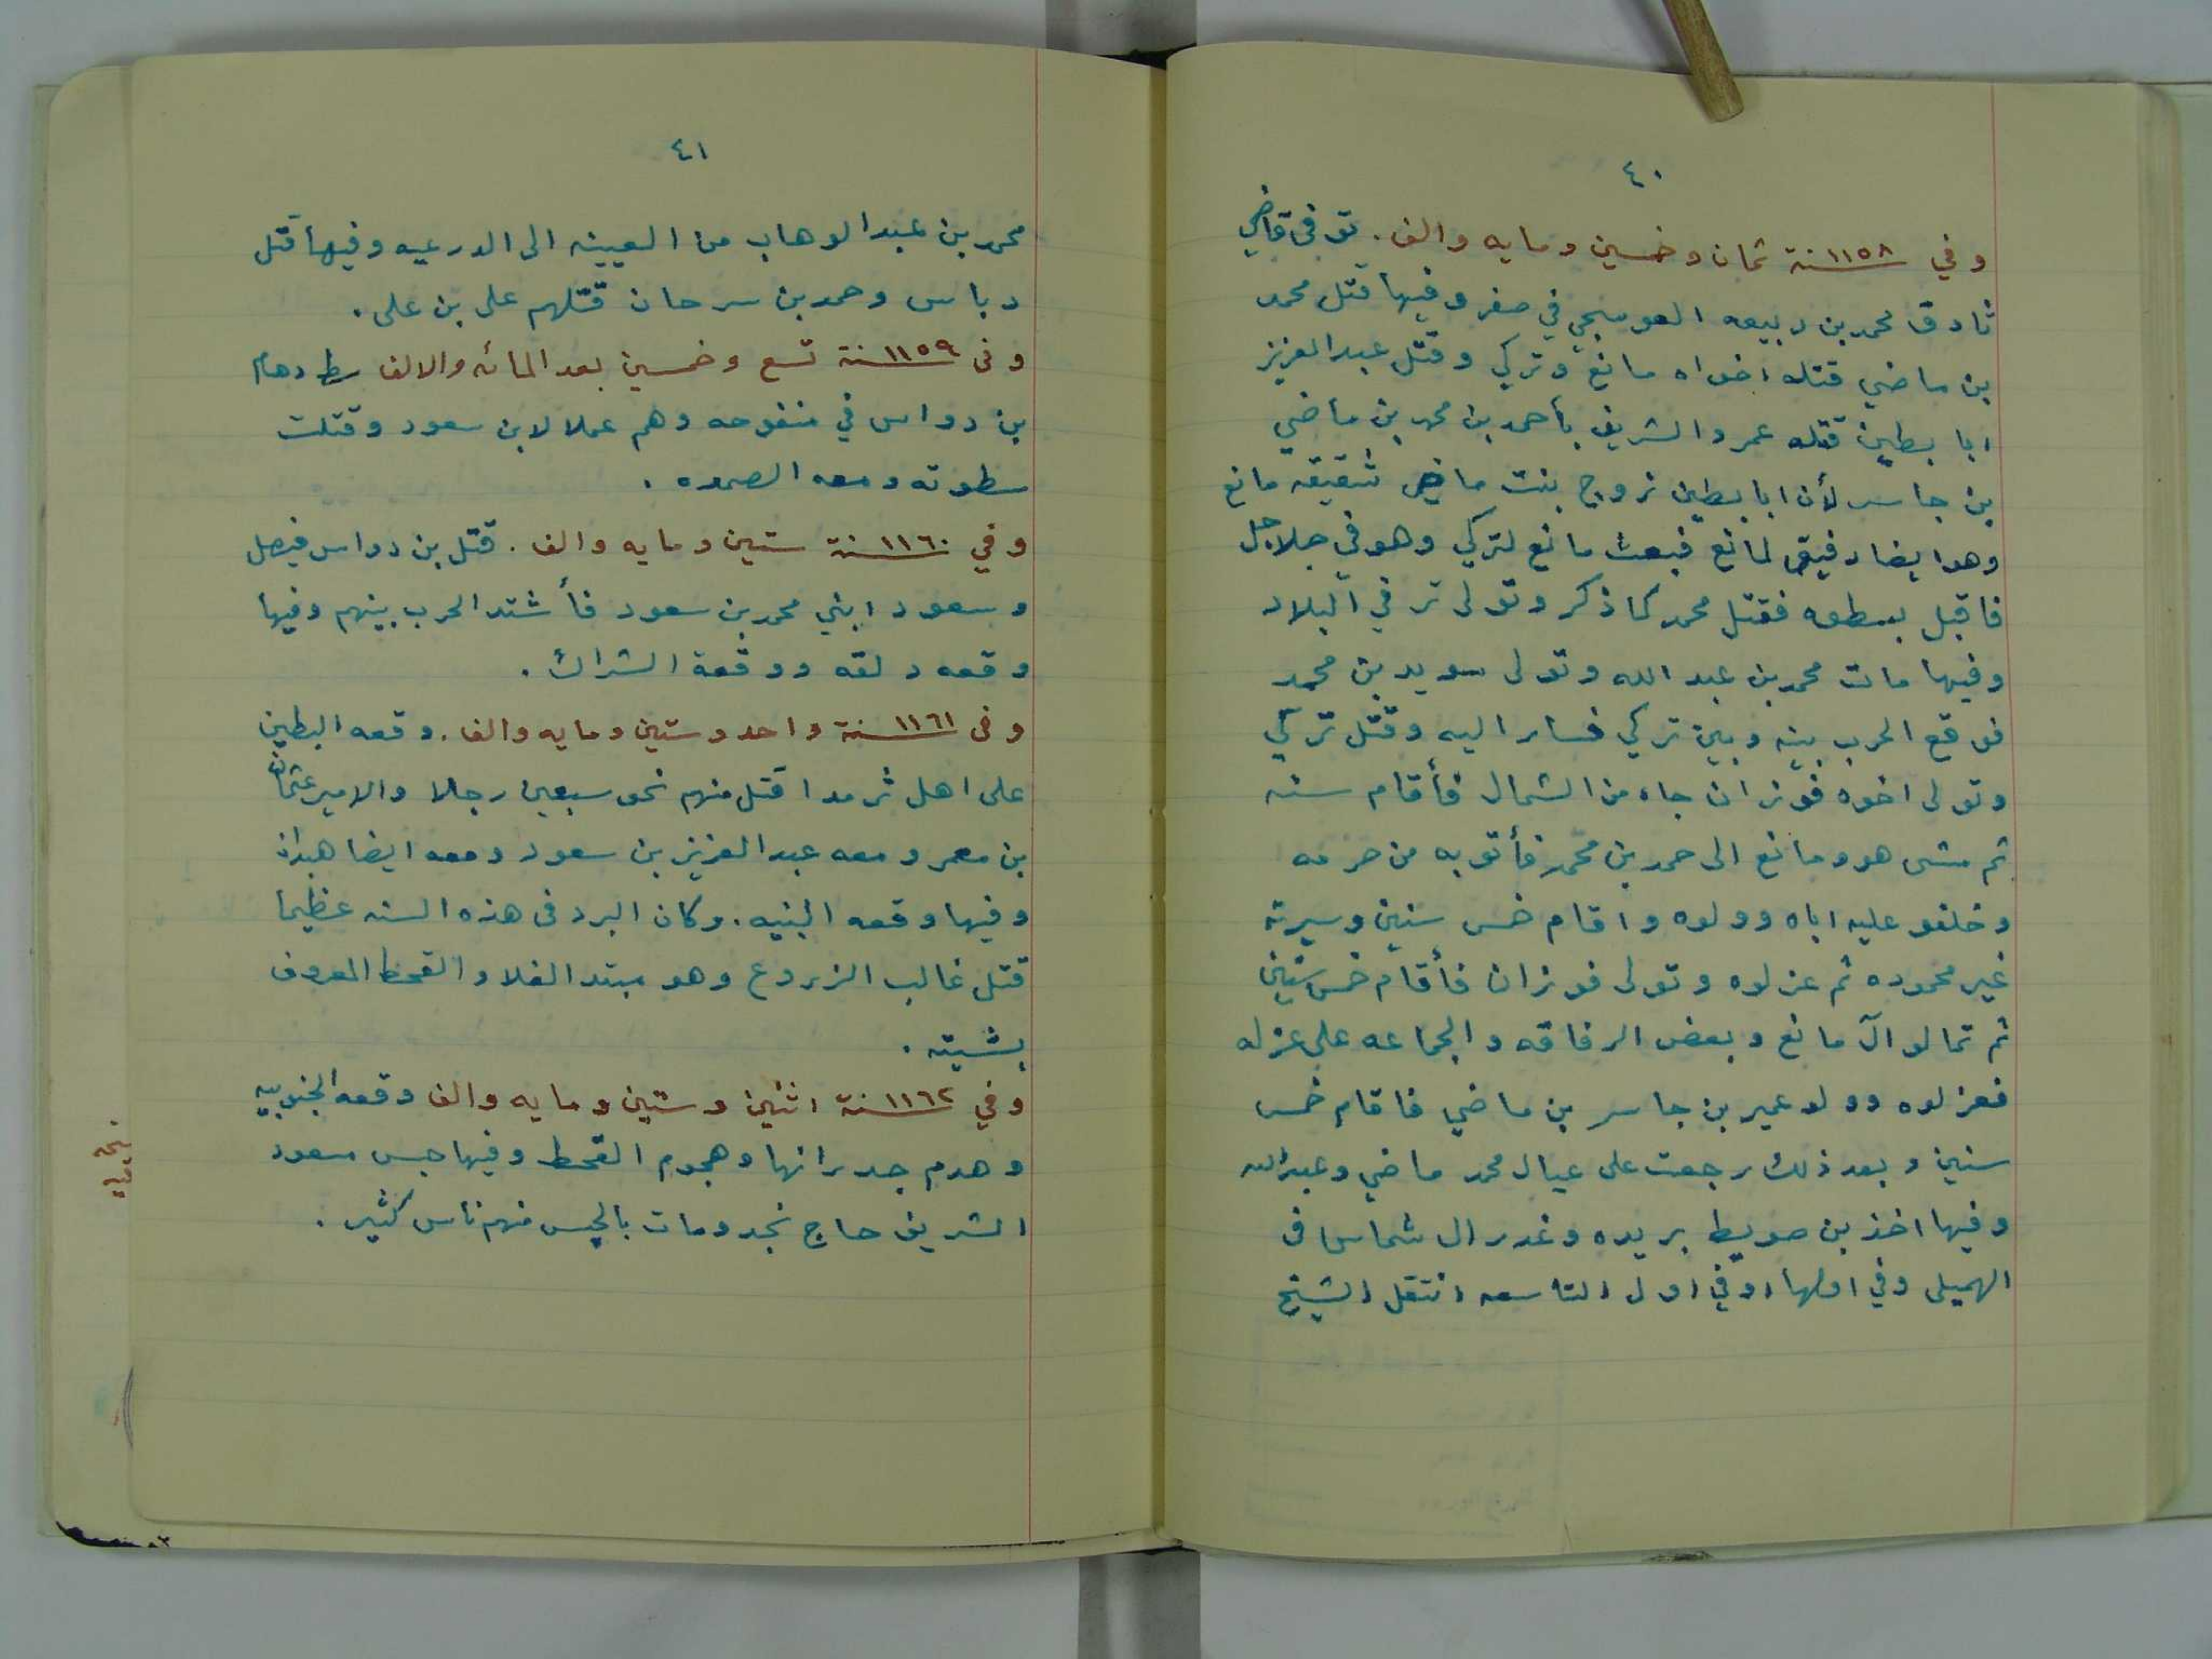 ٤٠
وفي ١١٥٨ سنة ثمان وخمسين ومايه والف. توفى قاضي
ثادق محمد بن ربيعه العوسجي في صفر وفيها قتل محمد
بن ماضي قتله اخواه مانع وتركي وقتل عبدالعزيز
ابا بطين قتله عمر والشريف بأحمد بن محمد بن ماضي
بن جاسر لأن ابا بطين زوج بنت ماضي شقيقه مانع
وهو ايضا رفيق لمانع فبعث مانع لتركي وهو في جلاجل
فاقبل بسطوه فقتل محمد كما ذكر وتولى تركي البلاد
وفيها مات محمد بن عبدالله وتولى سويد بن محمد
فوقع الحرب بينه وبين تركي فسار اليه وقتل تركي
وتولى اخوه فوزان جاء من الشمال فأقام سنه
ثم مشى هو ومانع الى حمد بن محمد فأتو به من حرمه
وخلفو عليه اباه وولوه واقام خمس سنين وسيرته
غير محموده ثم عزلوه وتولى فوزان فأقام خمس سنين
ثم تمالو آل مانع وبعض الرفاقه والجماعه على عزله
فعزلوه وولو عمير بن جاسر بن ماضي فاقام خمس
سنين وبعد ذلك رجعت على عيال محمد ماضي وعبدالله
وفيها اخذ بن صويط بريده وغدر ال شماس فى
الهميلى وفي اولها اوفي اول التاسعه انتقل الشيخ
٤١
محمد بن عبدالوهاب من العيينه الى الدرعيه وفيها قتل
دباس وحمد بن سرحان قتلهم علي بن علي.
وفى ١١٥٩ سنة تسع وخمسين بعد المائه والالف سطا دهام
بن دواس في منفوحه وهم عملا لابن سعود وقتلت
سطوته ومعه الصمده.
وفي ١١٦٠ سنة ستين ومايه والف. قتل بن دواس فيصل
وسعود ابني محمد بن سعود فأشتد الحرب بينهم وفيها
وقعه دلقه ووقعة الشراك.
وفى ١١٦١ سنة واحد وستين ومايه والف. وقعه البطين
على اهل ثرمدا قتل منهم نحو سبعين رجلا والامير عثمان
بن معمر ومعه عبدالعزيز بن سعود ومعه ايضا هبدان
وفيها وقعه البنيه. وكان البرد فى هذه السنه عظيما
قتل غالب الزروع وهو مبتد الغلا والقحط المعروف
بشيته.
وفي ١١٦٢ سنة اثنين وستين ومايه والف وقعه الجنوبيه
وهدم جدرانها وهجوم القحط وفيها حبس مسعود
الشريف حاج نجد ومات بالحبس منهم ناس كثير.